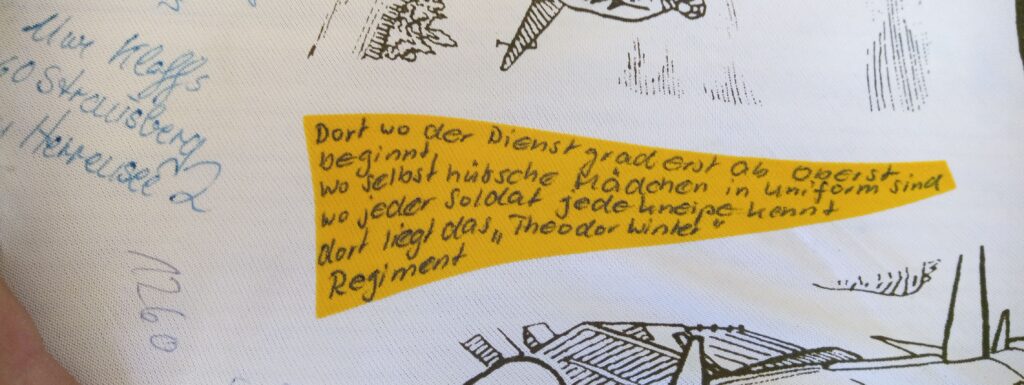 Uwe Klaffs
60 Strausberg
Herrensee 2
1260
Dort wo der Dienstgrad erst ab Oberst
beginnt,
wo selbst hübsche Mädchen in Uniform sind
wo jeder Soldat jede Kneipe kennt
dort liegt das „Theodor Winter"
Regiment